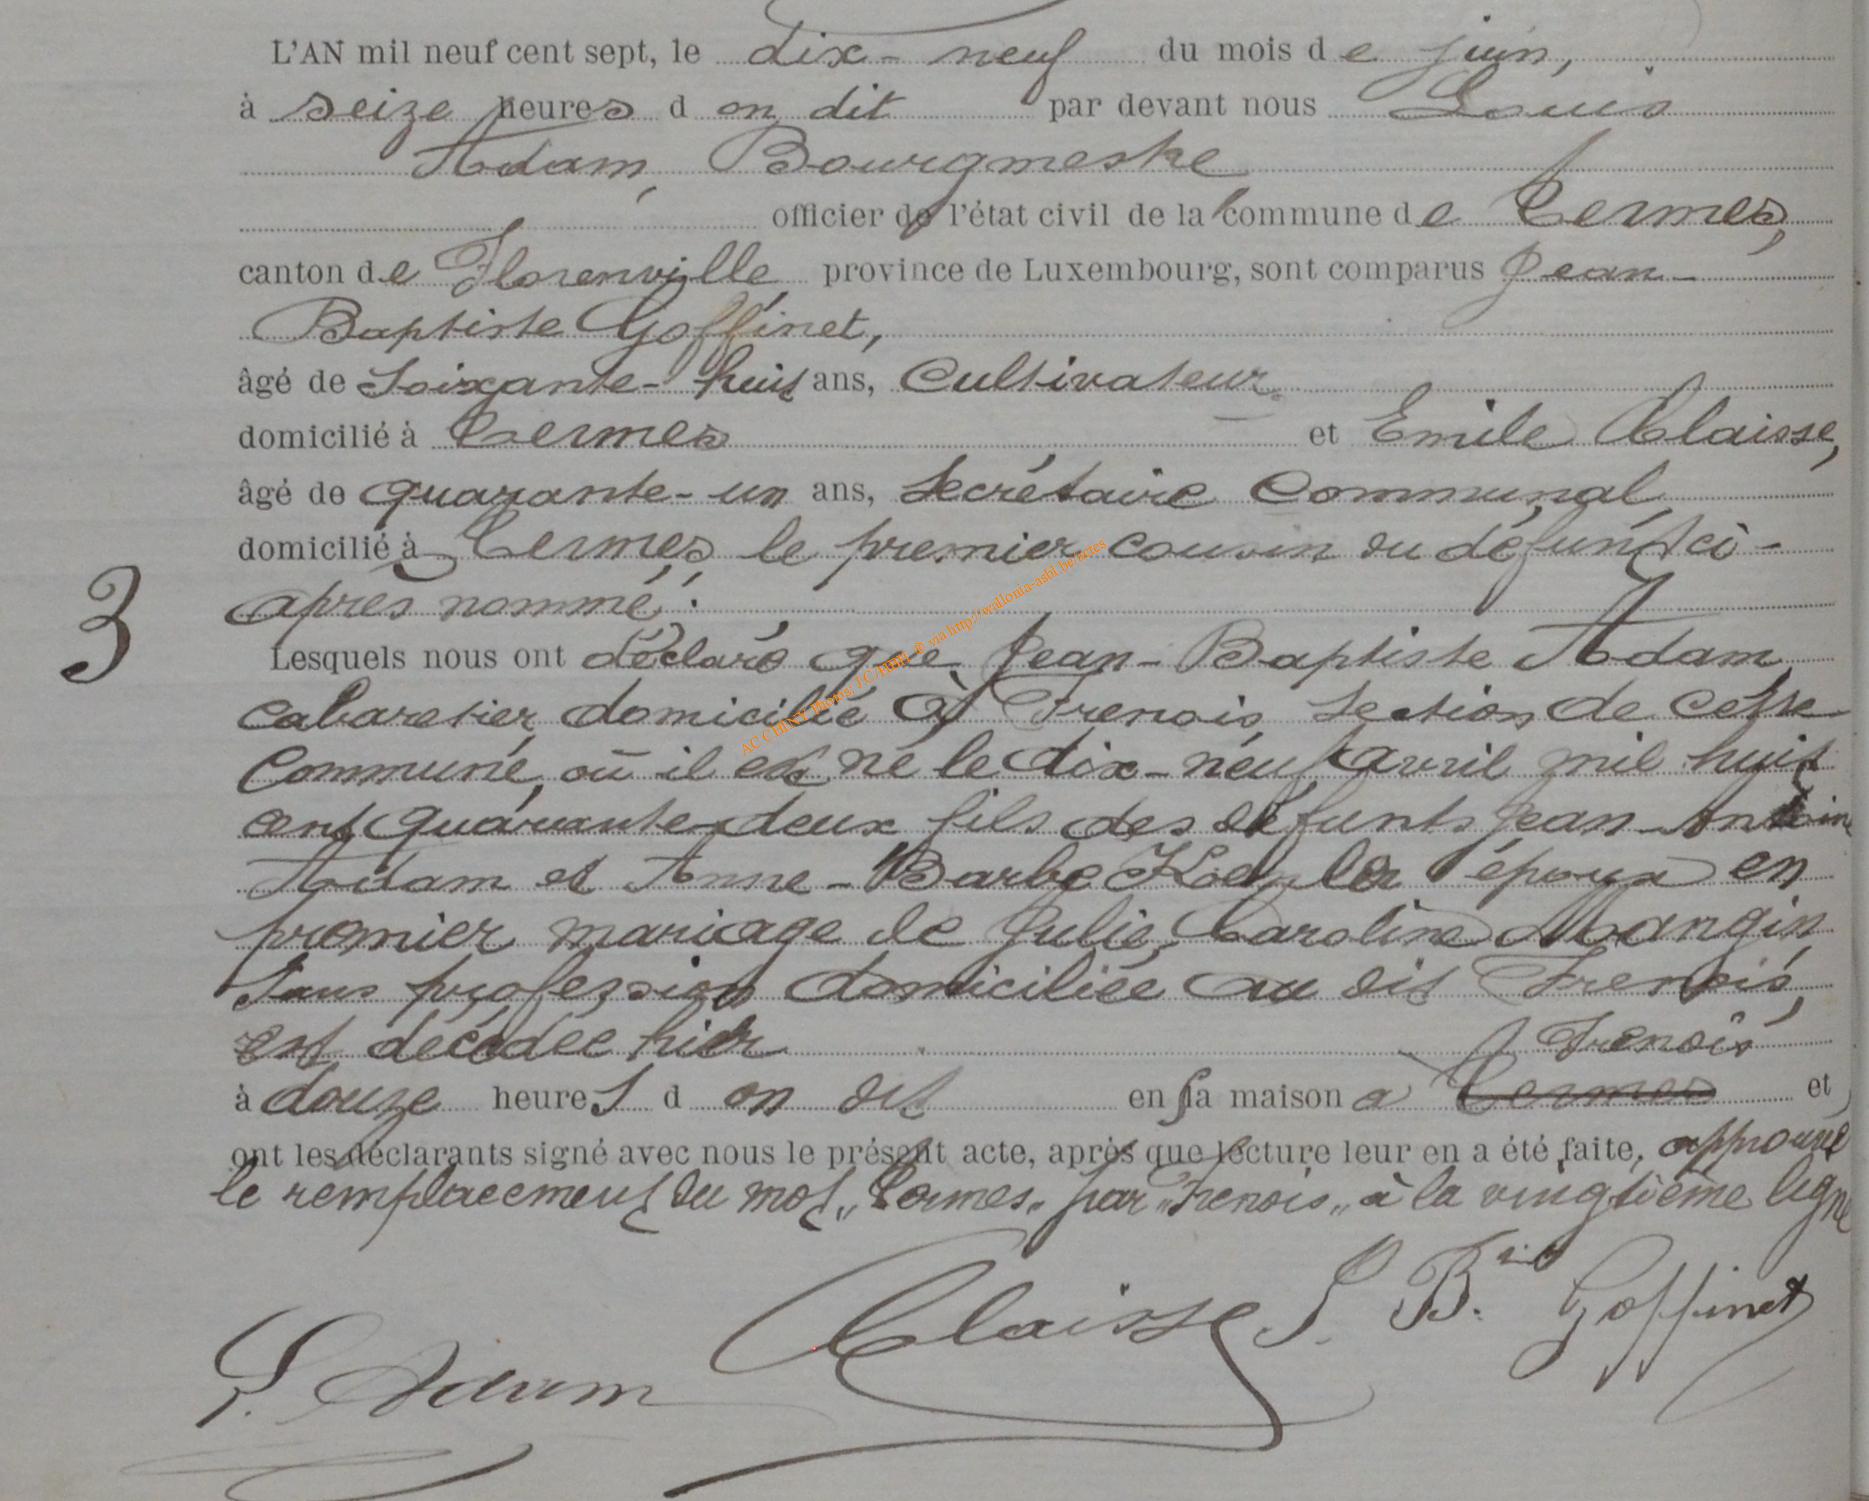 L'AN mil neuf cent sept, le dix-neuf du mois de juin,
à seize heures d on dit par devant nous Louis
Adam, Bourgmestre
officier de l'état civil de la commune de Termes,
canton de Florenville province de Luxembourg, sont comparus Jean-
Baptiste Goffinet,
âgé de soixante-huit ans, Cultivateur
domicilié à Termes et Emile Claisse,
âgé de quarante-un ans, secrétaire communal
domicilié à Termes le premier cousin du défunt ci-
après nommé.
3
Lesquels nous ont déclaré que Jean-Baptiste Adam
cabaretier domicilié à Frenois section de cette
commune, où il est né le dix-neuf avril mil huit
cent quarante-deux fils des défunts Jean-Antoine
Adam et Anne-Barbe époux en
premier mariage de Julie, Caroline Mangin
sans profession domiciliée au dit Frenois,
est décédée hier Frenois
à douze heures d on dit en sa maison a Termes et
ont les déclarants signé avec nous le présent acte, après que lecture leur en a été faite, approuvé
le remplacement du mot "Termes" par "Frenois" à la vingtième ligne
Claisse J. Bte Goffinet
L. Adam
AC CHINY Photos J C HIPP © via http://wallonia-asbl.be/actes